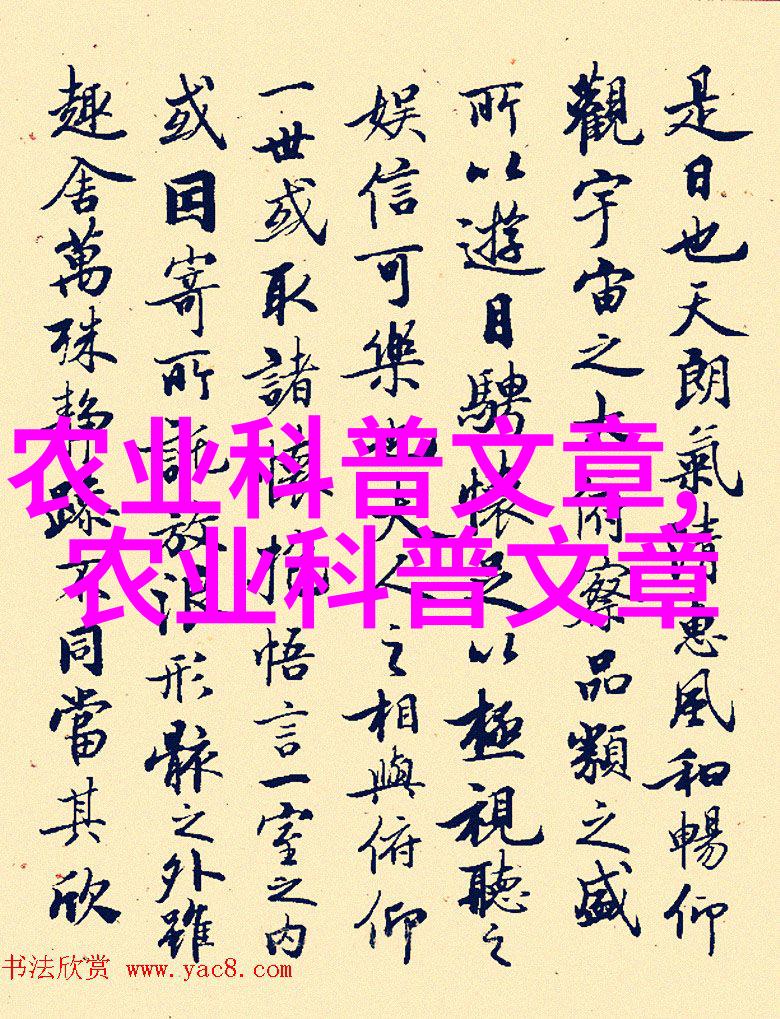 是日也天朗氣清惠風和暢仰
觀宇宙之大俯察品類之盛
所以遊目騁懷足以極視聽之
娱信可樂也夫人之相與俯仰
一世或取諸懷抱悟言一室之内
或因寄所託放浪形骸之外雖
趣舍萬殊静躁不同當其欣
农业科普文章,
农业科普文章
书法欣赏 www.yac8.com